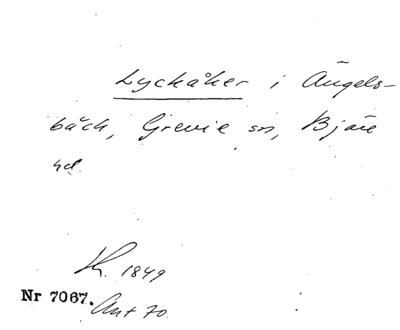 Lyckåker i Ängels-
bäck, Grevie sn, Bjäre
hd.
K. 1849
Nr 7067. Ant 70